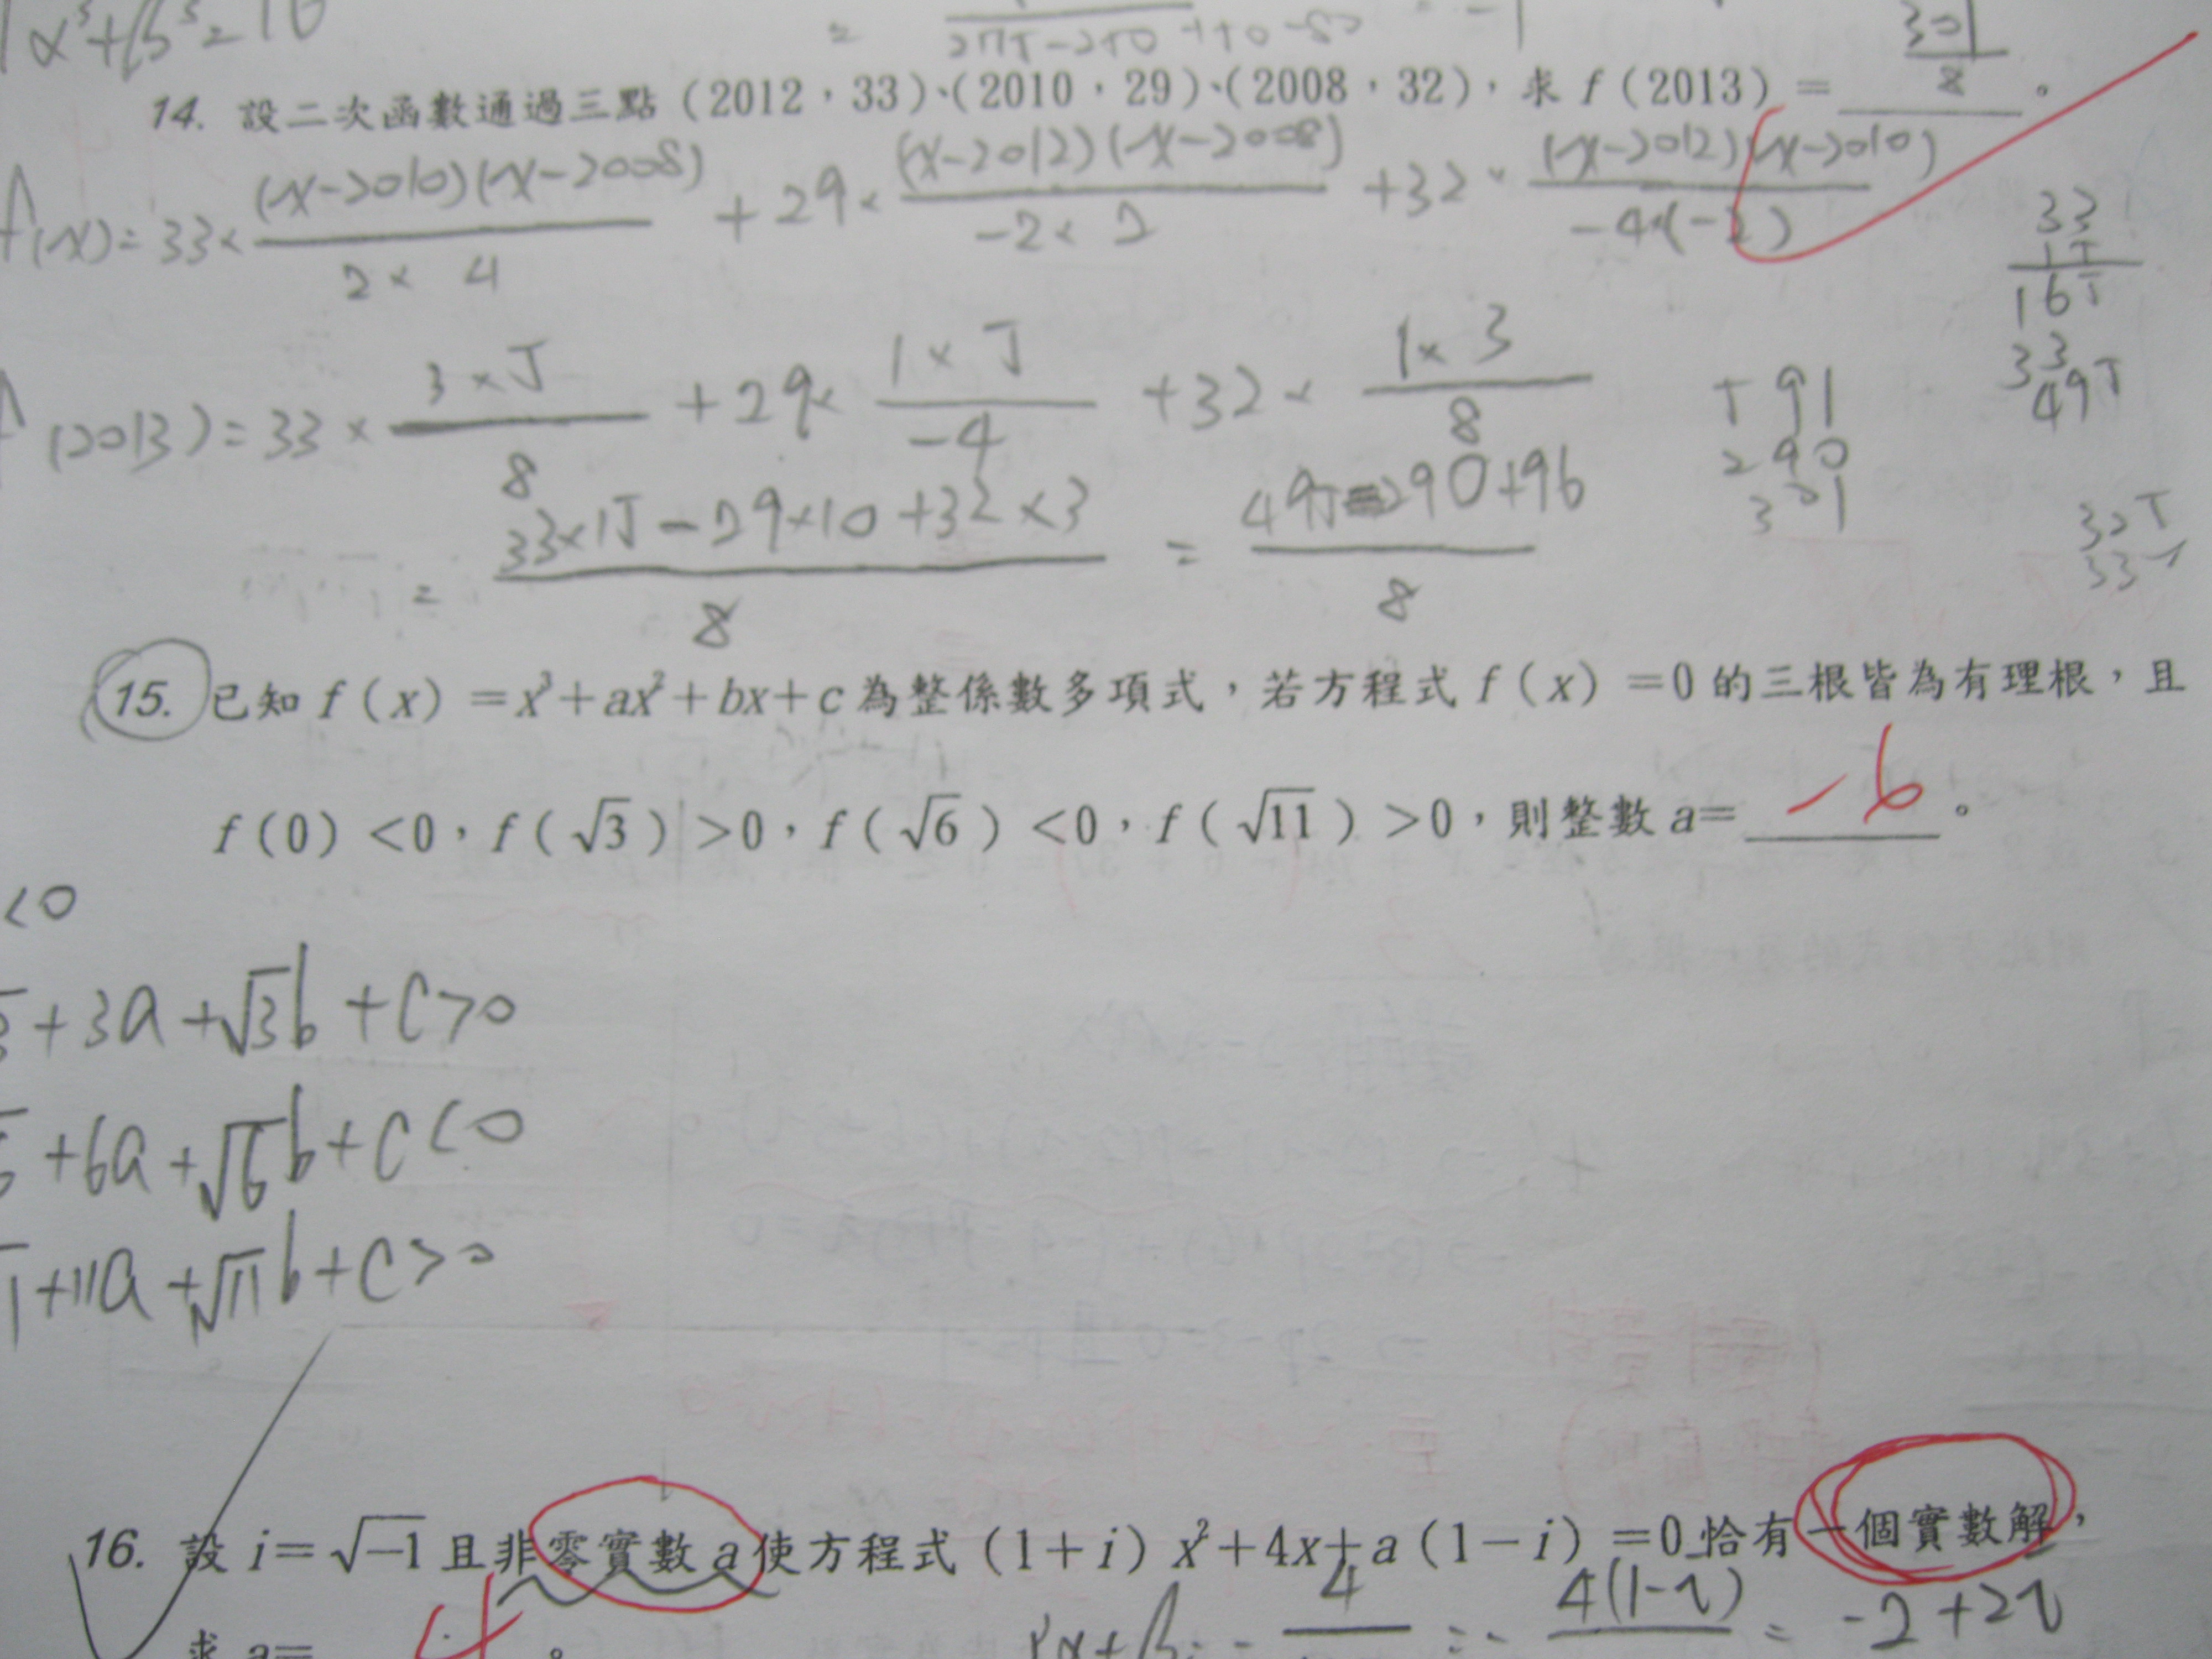 α³+β³=10
14. 設二次函數通過三點（2012，33）、（2010，29）、（2008，32），求 f（2013）= 301/8 。
f(x)=33×(x-2010)(x-2008)/2×4 +29×(x-2012)(x-2008)/-2×2 +32×(x-2012)(x-2010)/-4×(-2)
33
15
165
33
495
f(2013)=33×3×5/8 +29×1×5/-4 +32×1×3/8
591
290
301
=33×15-29×10+32×3/8 =495-290+96/8
15. 已知 f（x）=x³+ax²+bx+c 為整係數多項式，若方程式 f（x）=0 的三根皆為有理根，且
f（0）<0，f（√3）>0，f（√6）<0，f（√11）>0，則整數 a= -6 。
<0
+3a+√3b+c>0
+6a+√6b+c<0
+11a+√11b+c>0
16. 設 i=√-1 且非零實數 a 使方程式（1+i）x²+4x+a（1-i）=0 恰有一個實數解，
求 a= 4 。
α+β=-4/ =-4(1-i)/ = -2+2i